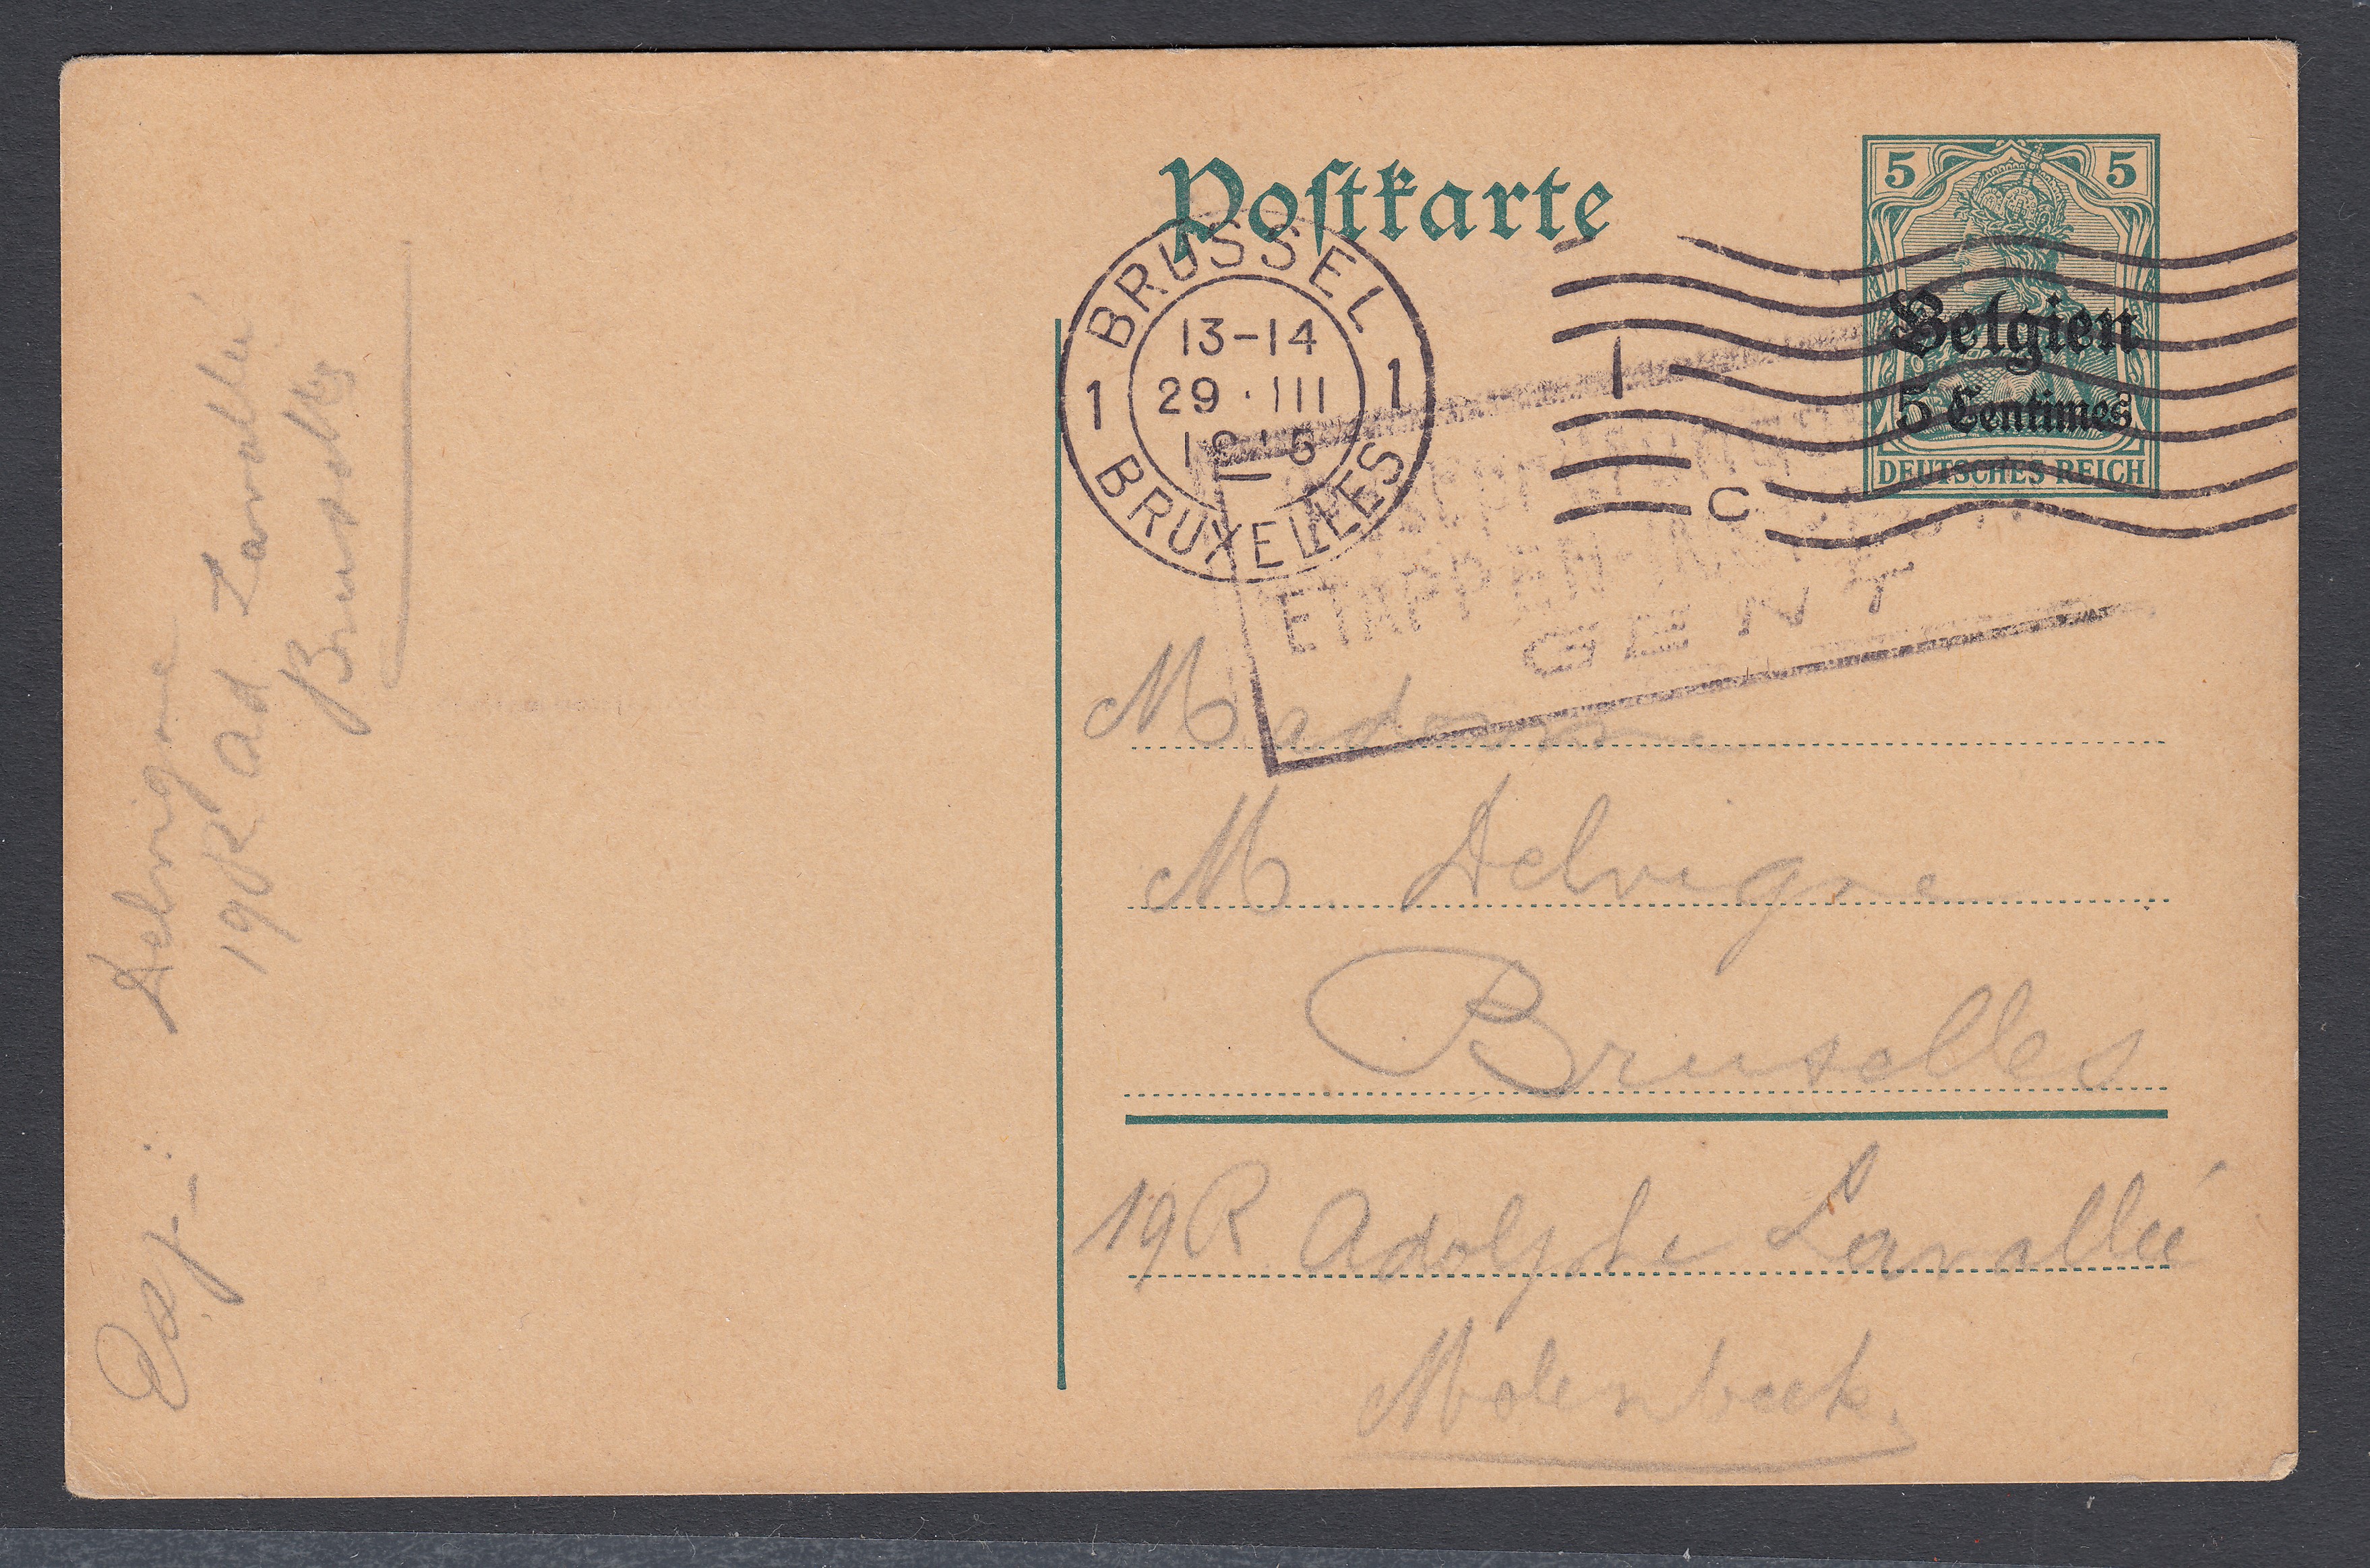 Postkarte
5 5
Belgien
5 Centimes
DEUTSCHES REICH
BRUSSEL
13-14
29·III
1915
1 1
BRUXELLES
1
C
ETAPPEN-INSPEKTION
GENT
Madame
M Delvigne
Bruxelles
19 R Adolphe Lavallée
Molenbeek.
Exp.:
Delvigne
19 R Ad Lavallée
Bruxelles